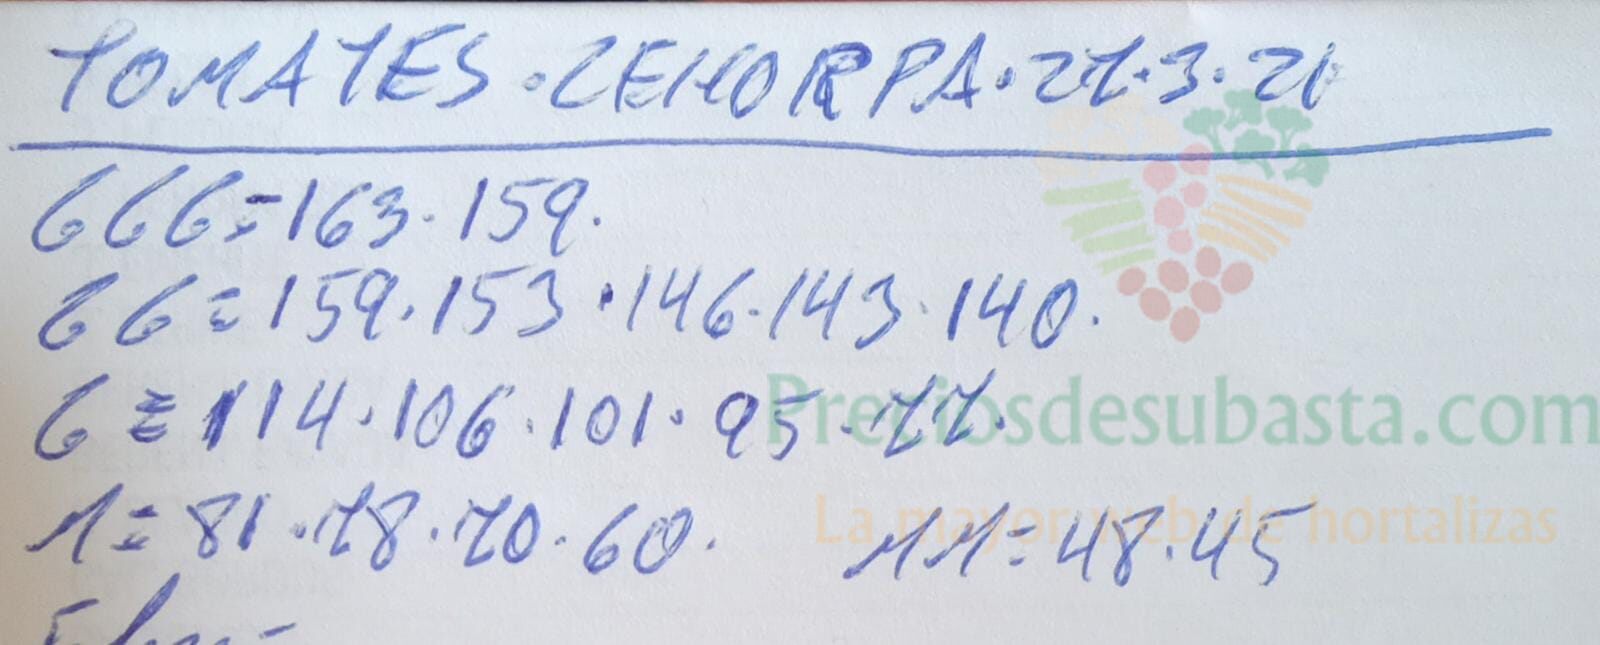 TOMATES · ZEHORPA · 27 · 3 · 21
GGG = 163 · 159 ·
GG = 159 · 153 · 146 · 143 · 140 ·
G = 114 · 106 · 101 · 95 · 77 ·
M = 81 · 78 · 70 · 60 · MM = 48 · 45
Preciosdesubasta.com
La mayor web de hortalizas